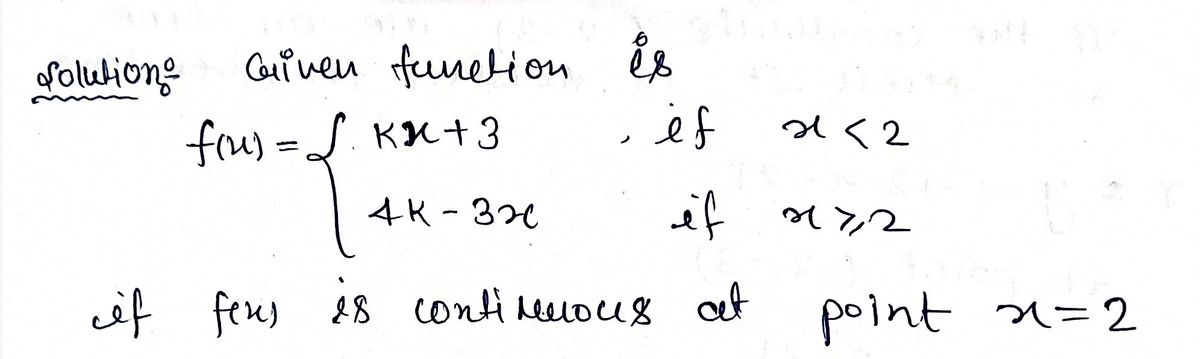 Solution: Given function is
f(x) = { kx + 3 , if x < 2
4k - 3x if x ≥ 2
if f(x) is continuous at point x = 2